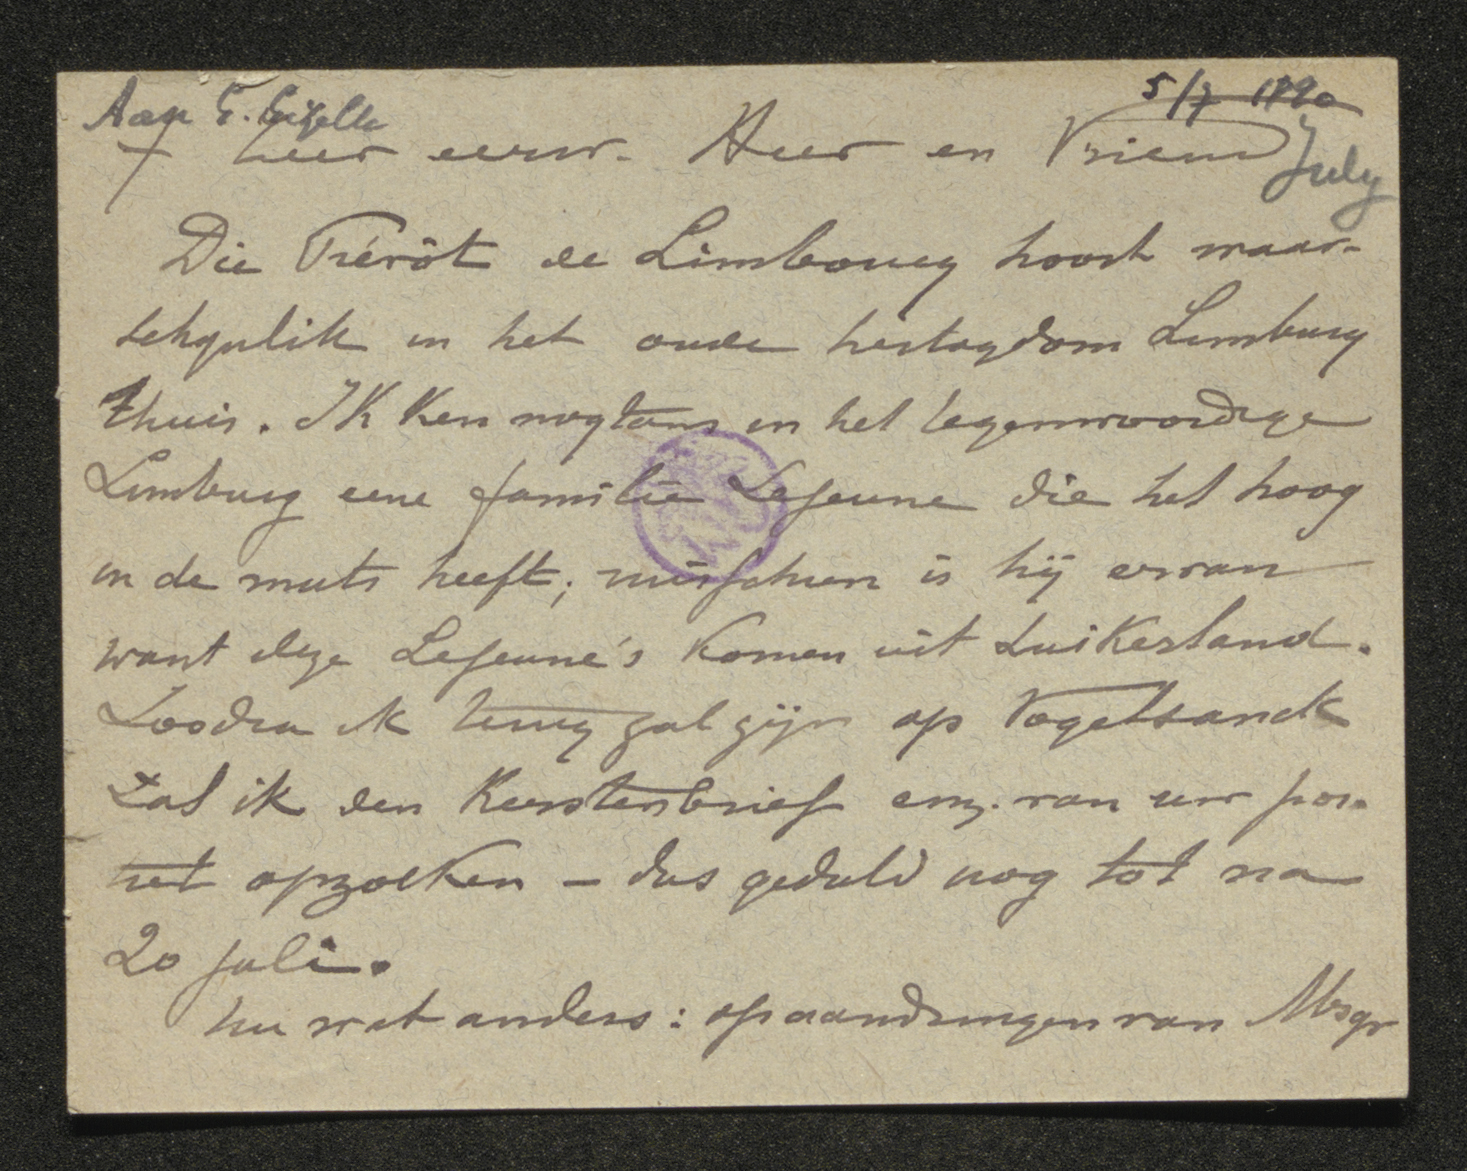 Aan G. Gezelle 5/7 1890
† Zeer eerw. Heer en Vriend July
Die Prévôt de Limbourg hoort waar-
schynlik in het oude hertogdom Limburg
thuis. Ik ken nogtans in het tegenwoordige
Limburg eene familie Lejeune die het hoog
in de muts heeft; misschien is hij ervan
want deze Lejeune's komen uit Luikerland.
Zoodra ik terug zal zijn op Vogelsanck
zal ik den Kerstenbrief enz. van uw por-
tret opzoeken – dus geduld nog tot na
20 juli.
Nu wat anders: op aandringen van Msgr